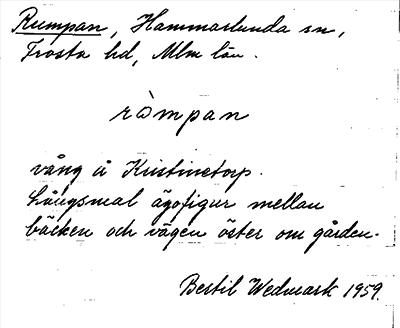 Rumpan, Hammarlunda sn,
Frosta hd, Mlm län.
ròmpan
vång å Kristinetorp.
Långsmal ägofigur mellan
bäcken och vägen öster om gården.
Bertil Wedmark 1959.